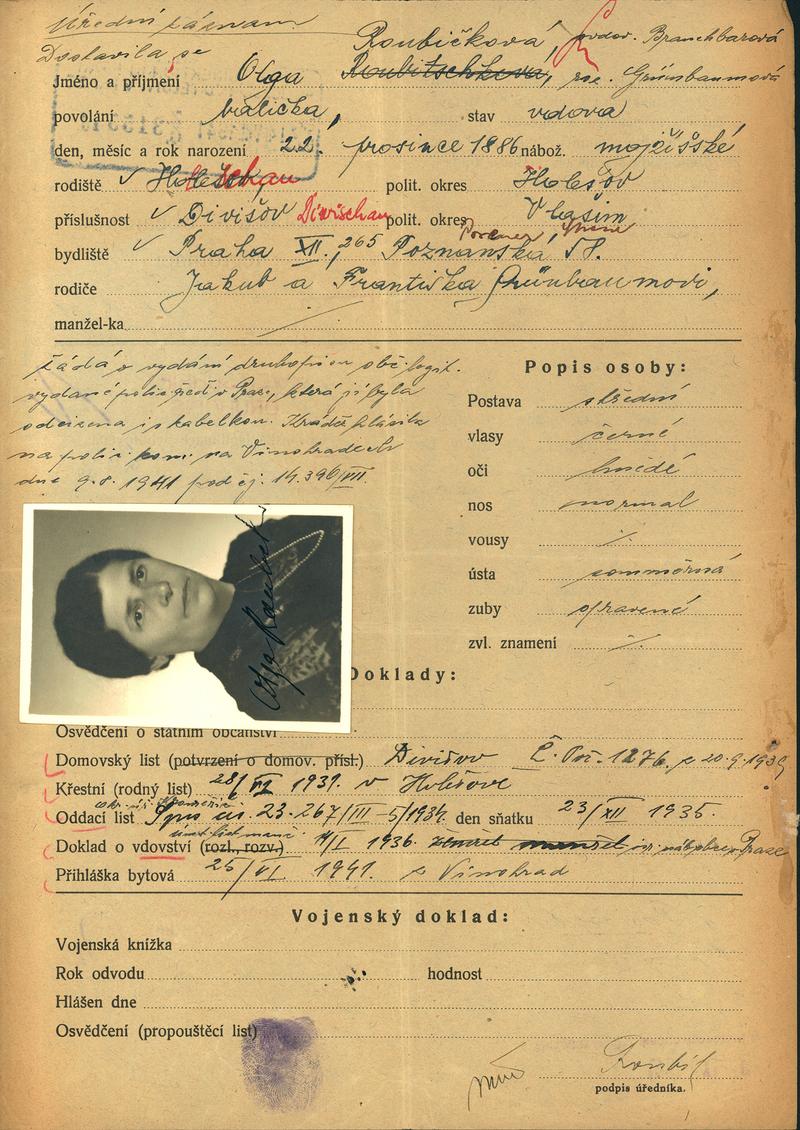 Úřední záznam
Dostavila se Roubíčková, ovdov. Branchbarová
Jméno a příjmení Olga Roubitschkova, roz. Grünbaumová
povolání balička, stav vdova
den, měsíc a rok narození 22. prosince 1886 nábož. mojžíšské
rodiště Holešov, polit. okres Holešov
příslušnost Divišov Diwischau polit. okres Vlašim
bydliště Praha XII., 265 Poznaňská 58.
rodiče Jakub a Františka Grünbaumovi,
manžel-ka
žádá o vydání druhopisu obč. legit.
vydané polic. řed. v Praze, která jí byla
odcizena i s kabelkou. Krádež hlásila
na polic. kom. na Vinohradech
dne 9.8. 1941 pod čj. 14.396/VII.
Popis osoby:
Postava střední
vlasy černé
oči hnědé
nos normal
vousy ·/.
ústa souměrná
zuby opravené
zvl. znamení ·/.
Olga Roubíčk
Doklady:
Osvědčení o státním občanství
Domovský list (potvrzení o domov. přísl.) Divišov Č. Poř. 1276. z 20.9.1939
Křestní (rodný list) 28/VI 1939. v Holešově
Oddací list Spis čís. 23.267/III-5/1934. den sňatku 23/XII 1935.
Doklad o vdovství (rozl., rozv.) 11/I 1936. Praze
Přihláška bytová 25/VI 1941. z Vinohrad
Vojenský doklad:
Vojenská knížka
Rok odvodu hodnost
Hlášen dne
Osvědčení (propouštěcí list)
podpis úředníka.